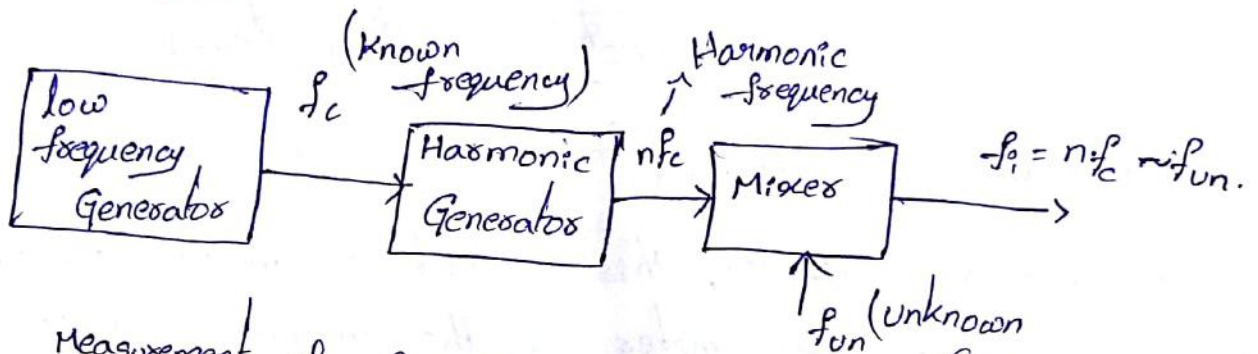 low
frequency
Generator
fc
(Known
frequency)
Harmonic
Generator
nfc
Harmonic
frequency
Mixer
fi = nfc ~ fun.
fun (unknown
Measurement